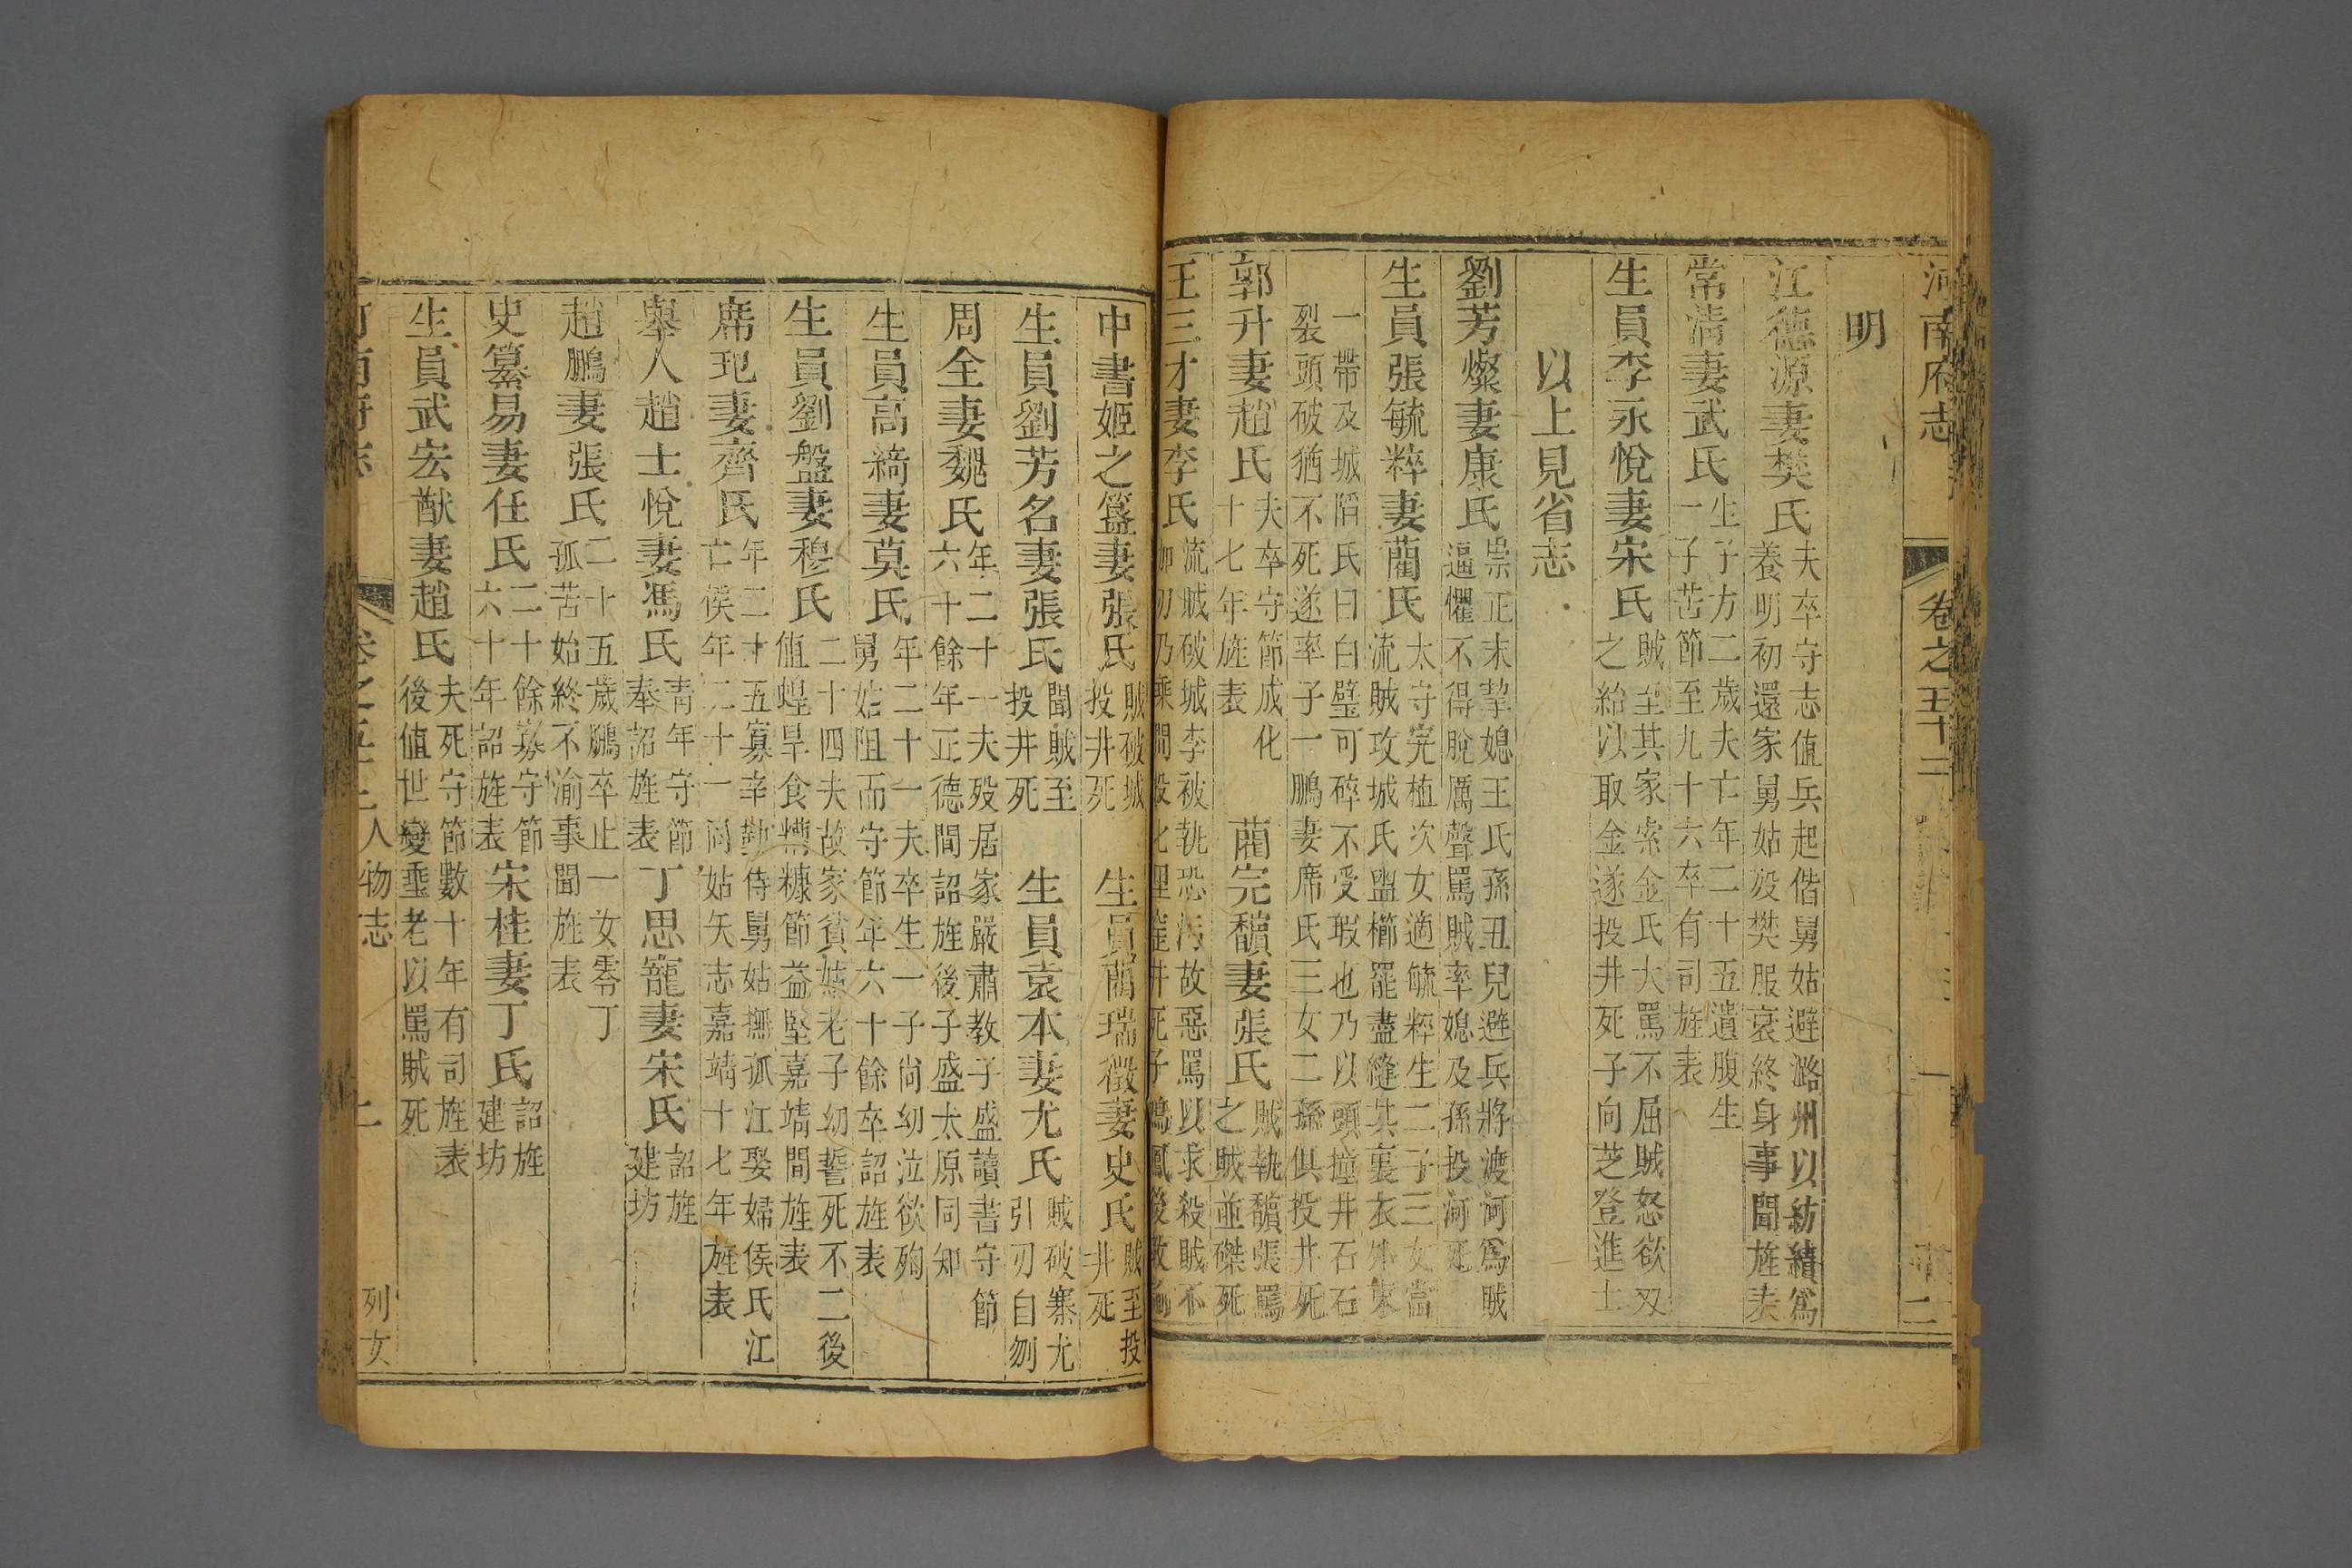 河南府志
卷之五十二
二
明
江德源妻樊氏夫卒守志值兵起偕舅姑避潞州以紡績爲
養明初還家舅姑歿樊服衰終身事聞旌表
常清妻武氏生子方二歲夫亡年二十五遺腹生
一子苦節至九十六卒有司旌表
生員李永悅妻宋氏賊至其家索金氏大罵不屈賊怒欲双
之紿以取金遂投井死子向芝登進士
以上見省志
劉芳燦妻康氏崇正末挈媳王氏孫丑兒避兵將渡河爲賊
逼懼不得脫厲聲罵賊率媳及孫投河死
生員張毓粹妻藺氏太守完植次女適毓粹生二子三女當
流賊攻城氏盥櫛罷盡縫其裏衣外束
一帶及城陷氏曰白璧可碎不受瑕也乃以頭撞井石石
裂頭破猶不死遂率子一鵬妻席氏三女二孫俱投井死
郭升妻趙氏夫卒守節成化
十七年旌表
藺完馥妻張氏賊執馥張罵
之賊並磔死
王三才妻李氏流賊破城李被執恐污故惡罵以求殺賊不
中書姬之簋妻張氏賊破城
投井死
生員藺瑞徵妻史氏賊至投
井死
生員劉芳名妻張氏聞賊至
投井死
生員袁本妻尤氏賊破寨尤
引刃自刎
周全妻魏氏年二十一夫歿居家嚴肅教子盛讀書守節
六十餘年正德間詔旌後子盛太原同知
生員高綺妻莫氏年二十一夫卒生一子尚幼泣欲殉
舅姑阻而守節年六十餘卒詔旌表
生員劉盤妻穆氏二十四夫故家貧姑老子幼誓死不二後
值蝗旱食糠節益堅嘉靖間旌表
席玘妻齊氏年二十五寡辛勤侍舅姑撫孤江娶婦侯氏江
亡侯年二十一同姑矢志嘉靖十七年旌表
舉人趙士悅妻馮氏青年守節
奉詔旌表
丁思寵妻宋氏詔旌
建坊
趙鵬妻張氏二十五歲鵬卒止一女零丁
孤苦始終不渝事聞旌表
史纂易妻任氏二十餘寡守節
六十年詔旌表
宋桂妻丁氏詔旌
建坊
生員武宏猷妻趙氏夫死守節數十年有司旌表
後值世變垂老以罵賊死
人物志
列女